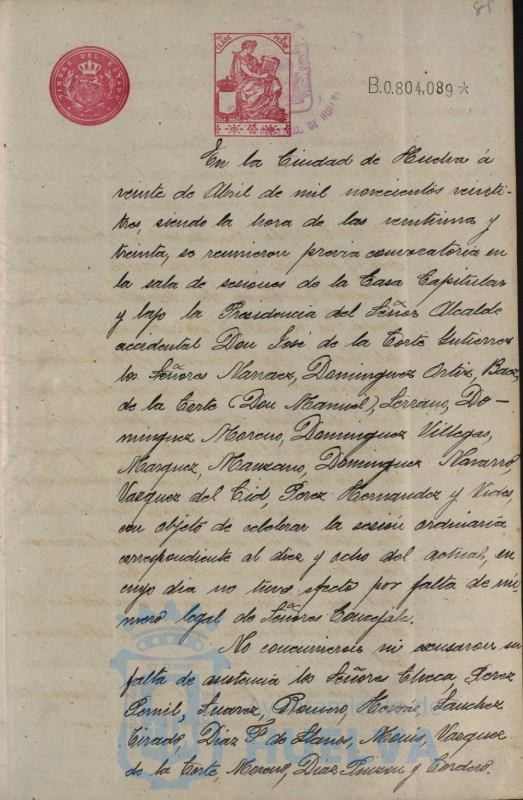 85
TIMBRE DEL ESTADO
B.0.804,089*
En la Ciudad de Huelva á
veinte de Abril de mil novecientos veinti-
tres, siendo la hora de las veintiuna y
treinta, se reunieron previa convocatoria en
la sala de sesiones de la Casa Capitular
y bajo la Presidencia del Señor Alcalde
accidental Don José de la Corte Gutierrez
los Señores Narraez, Dominguez Ortiz, Baez,
de la Corte (Don Manuel), Serrano, Do-
minguez Moreno, Dominguez Villegas,
Marquez, Manzano, Dominguez Navarro,
Vazquez del Cid, Perez Hernandez y Vides,
con objeto de celebrar la sesión ordinaria
correspondiente al diez y ocho del actual, en
cuyo dia no tuvo efecto por falta de nú-
mero legal de Señores Concejales.
No concurrieron ni excusaron su
falta de asistencia los Señores Checa, Perez
Pernil, Suarez, Romero, Sanchez
Tirado, Diaz F. de Llanos, Vazquez
de la Corte, Moreno, Diaz Pinzon y Cordero.